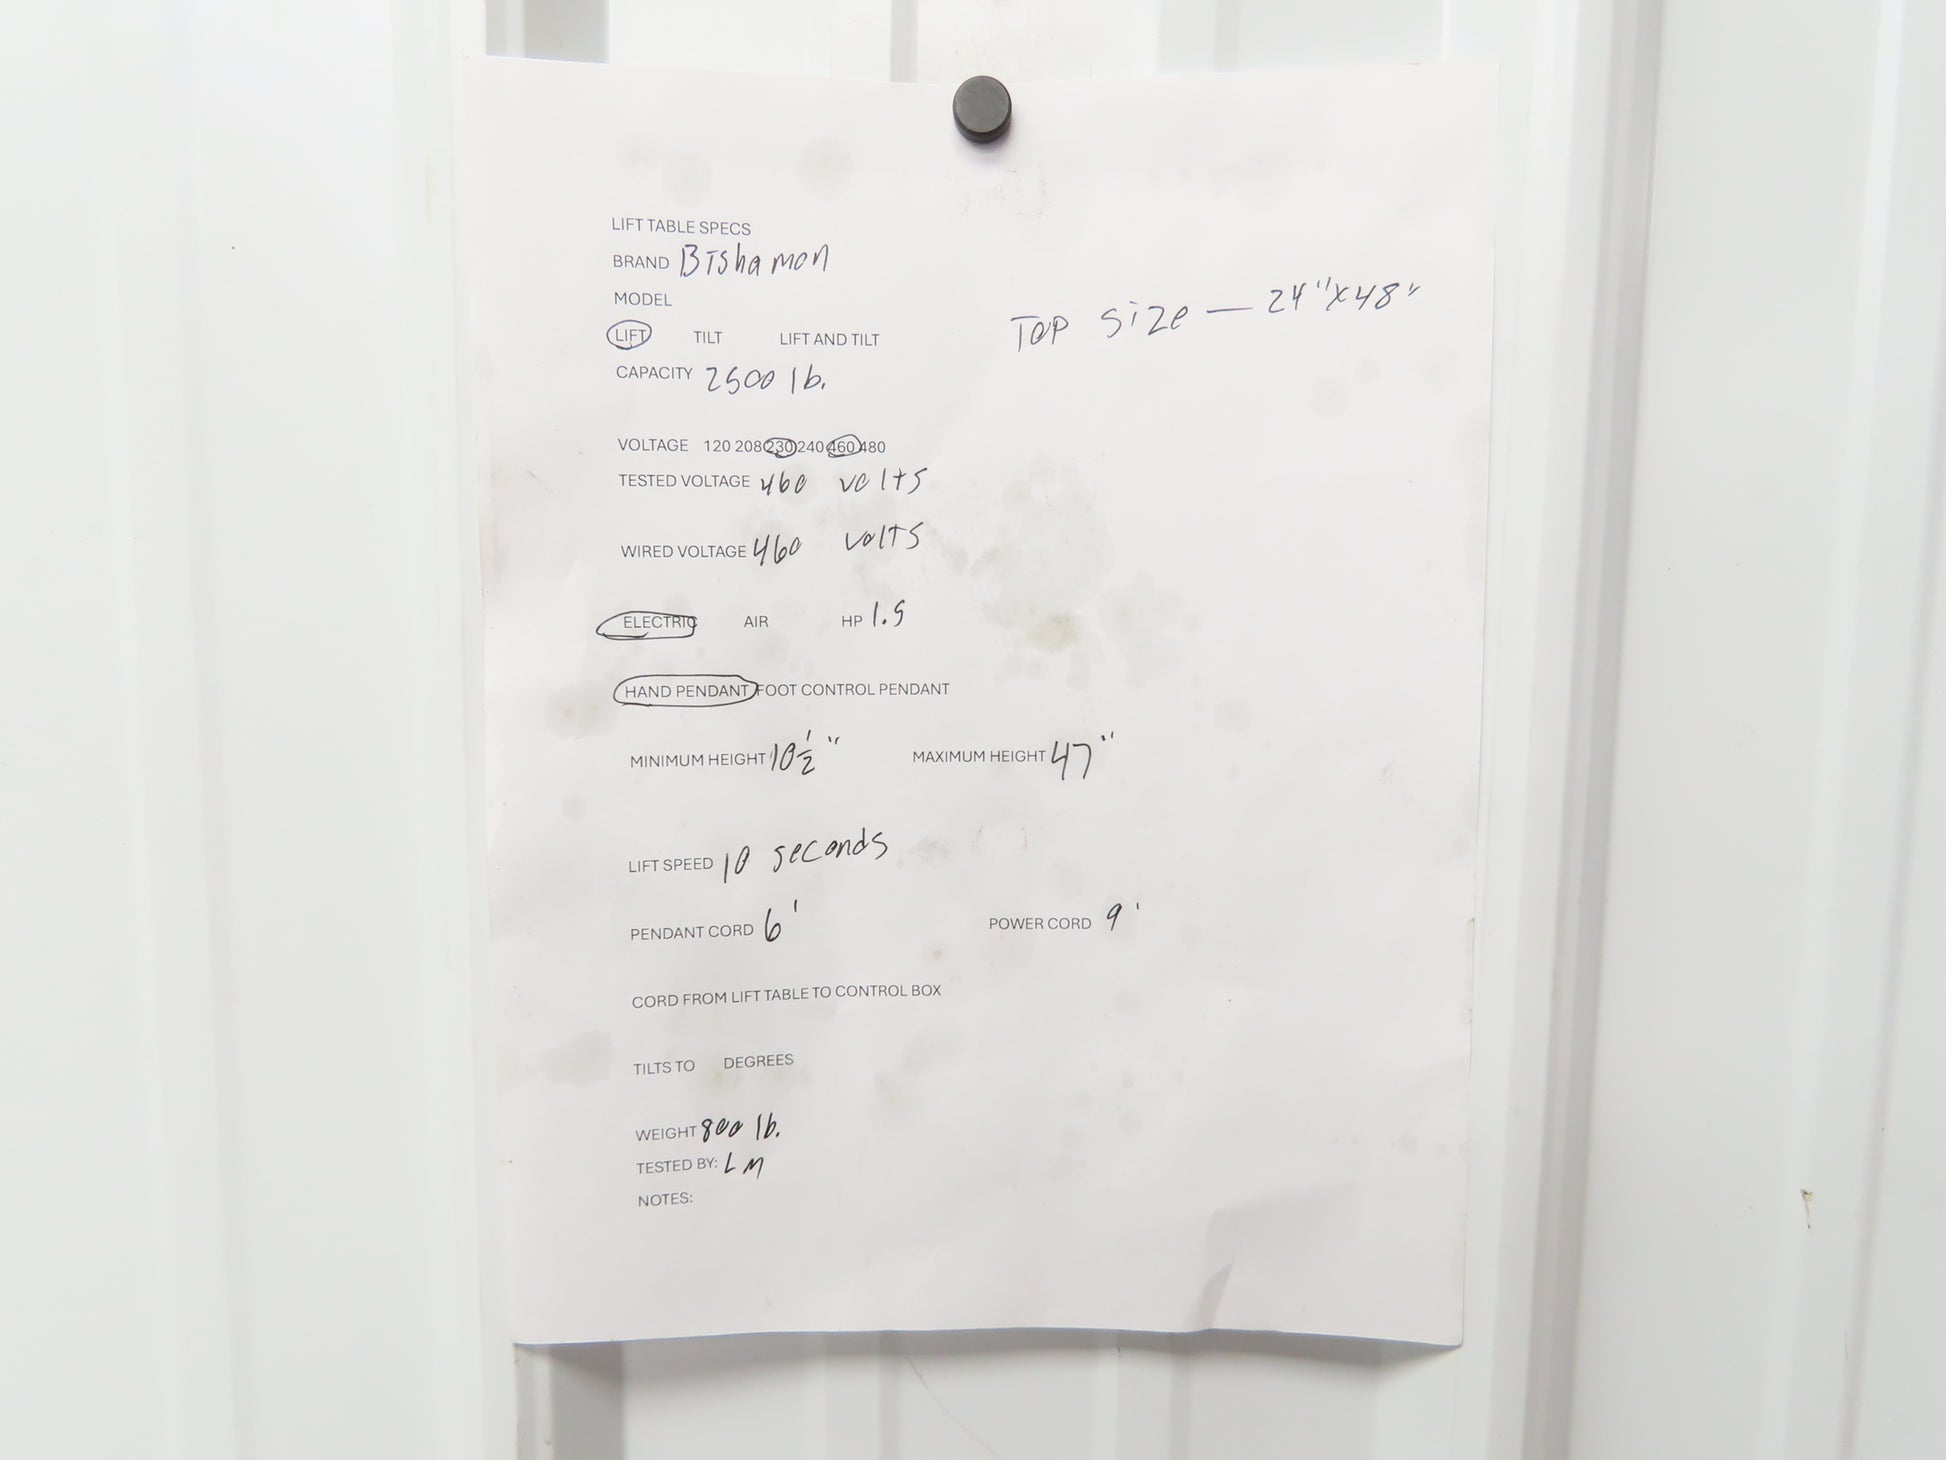 LIFT TABLE SPECS
BRAND Bishamon
MODEL
TOP size — 24"x48"
LIFT TILT LIFT AND TILT
CAPACITY 2500 lb.
VOLTAGE 120 208 230 240 460 480
TESTED VOLTAGE 460 volts
WIRED VOLTAGE 460 volts
ELECTRIC AIR HP 1.5
HAND PENDANT FOOT CONTROL PENDANT
MINIMUM HEIGHT 10 1/2" MAXIMUM HEIGHT 47"
LIFT SPEED 10 seconds
PENDANT CORD 6' POWER CORD 9'
CORD FROM LIFT TABLE TO CONTROL BOX
TILTS TO DEGREES
WEIGHT 800 lb.
TESTED BY: LM
NOTES: